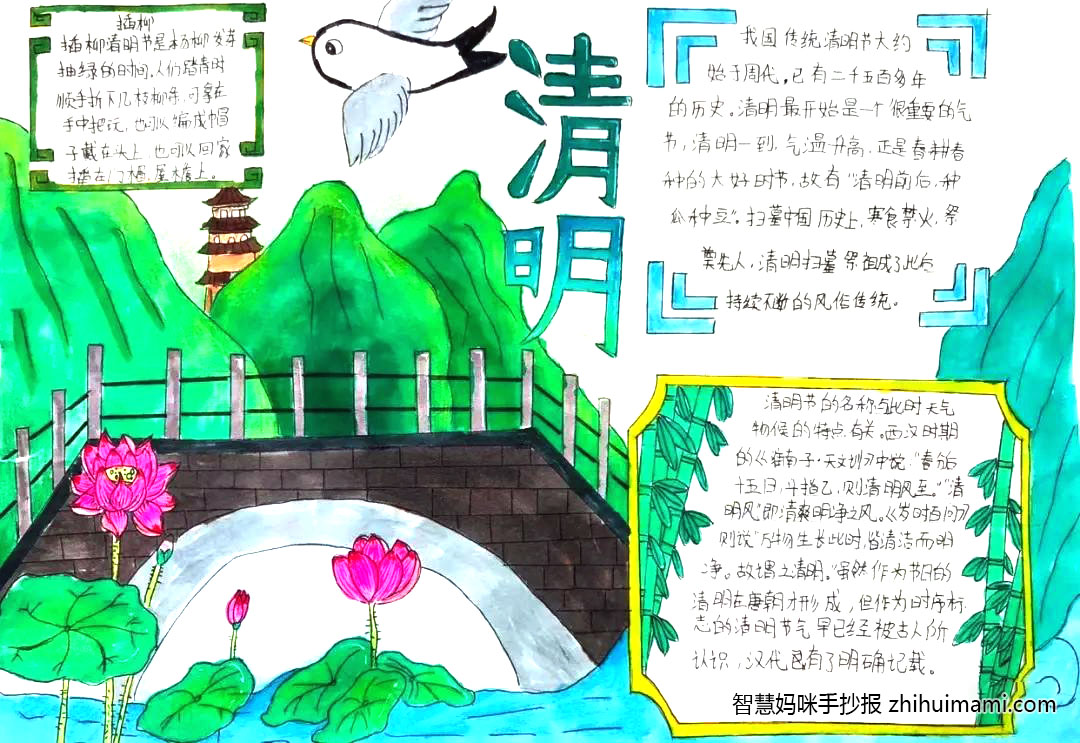 插柳
插柳清明节是杨柳发芽
抽绿的时间,人们踏青时
顺手折下几枝柳条,可拿在
手中把玩,也可以编成帽
子戴在头上,也可以回家
插在门楣,屋檐上。
清明
我国传统清明节大约
始于周代,已有二千五百多年
的历史。清明最开始是一个很重要的气
节,清明一到,气温升高,正是春耕春
种的大好时节,故有“清明前后,种
瓜种豆”。扫墓中国历史上,寒食禁火,祭
奠先人,清明扫墓祭祖成了此后
持续不断的风俗传统。
清明节的名称与此时天气
物候的特点有关。西汉时期
的《淮南子·天文训》中说:“春分后
十五日,斗指乙,则清明风至。”“清
明风”即清爽明净之风。《岁时百问》
则说“万物生长此时,皆清洁而明
净。故谓之清明。”虽然作为节日的
清明在唐朝才形成,但作为时序标
志的清明节气早已经被古人所
认识,汉代已有了明确记载。
智慧妈咪手抄报 zhihuimami.com